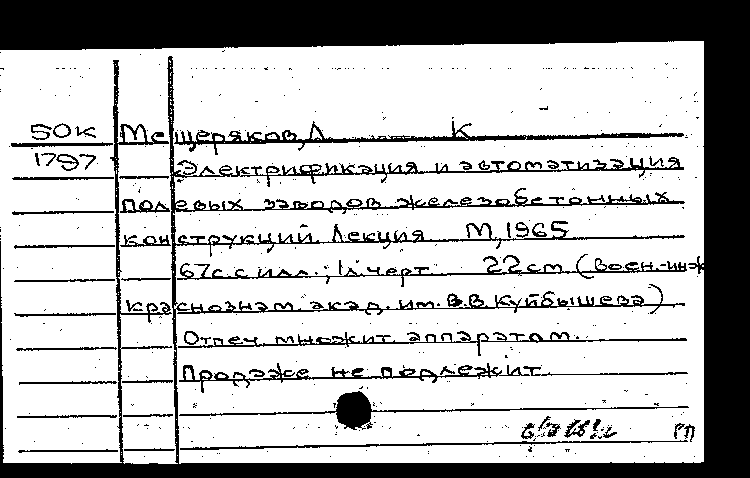 50К Мещеряков, Л К
1797 Электрификация и автоматизация
полевых заводов железобетонных
конструкций. Лекция М, 1965
67с. с илл.; 1л. черт. 22 cm (Воен.-инж
краснознам. акад. им. В.В. Куйбышева)
Отпеч. множит. аппаратом.
Продаже не подлежит
РП